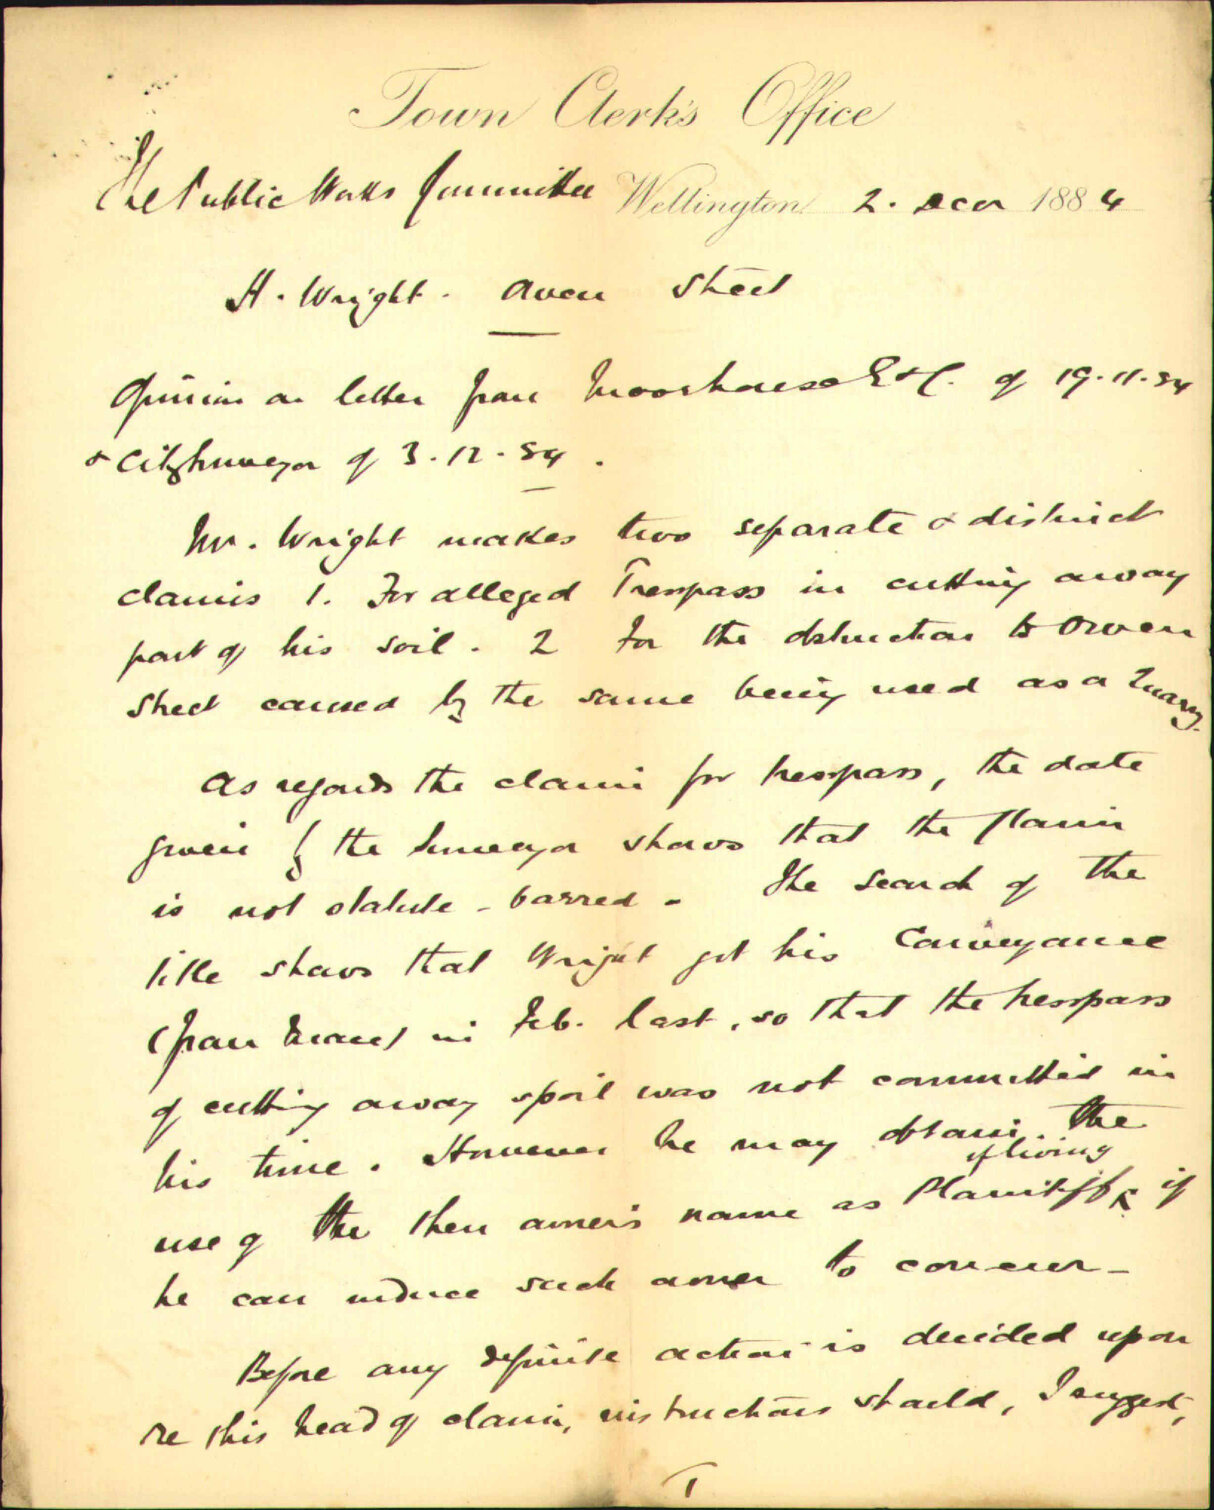 Town Clerk's Office
The Public Works Committee Wellington 2. Decr 1884
H. Wright. Owen Street
Opinion on letter from Moorhouse E & C. of 19.11.84
& City Surveyor of 3.12.84.
Mr. Wright makes two separate & distinct
claims 1. For alleged Trespass in cutting away
part of his soil. 2 For the obstruction to Owen
Street caused by the same being used as a Quarry.
As regards the claim for trespass, the date
given by the Surveyor shows that the claim
is not statute-barred. The search of the
title shows that Wright got his Conveyance
(from ) in Feb. last, so that the trespass
of cutting away spoil was not committed in
his time. However he may obtain the
if living
use of the then owner's name as Plaintiff if
he can induce such owner to concur-
Before any definite action is decided upon
re this head of claim, instructions should, I suggest,
1